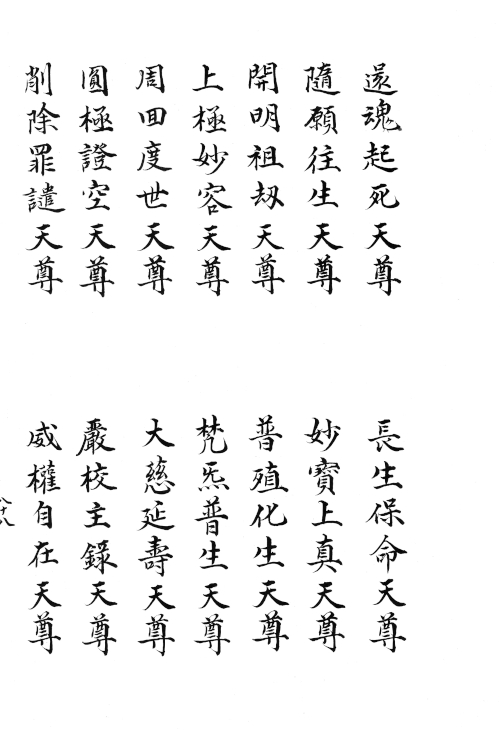 還魂起死天尊
長生保命天尊
隨願往生天尊
妙寶上真天尊
開明祖劫天尊
普殖化生天尊
上極妙容天尊
梵炁普生天尊
周回度世天尊
大慈延壽天尊
圓極證空天尊
嚴校主錄天尊
削除罪譴天尊
威權自在天尊